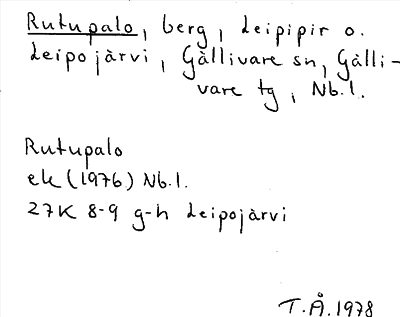 Rutupalo, berg, Leipipir o.
Leipojärvi, Gällivare sn, Gälli-
vare tg, Nb.l.
Rutupalo
ek (1976) Nb.l.
27K 8-9 g-h Leipojärvi
T.Å. 1978